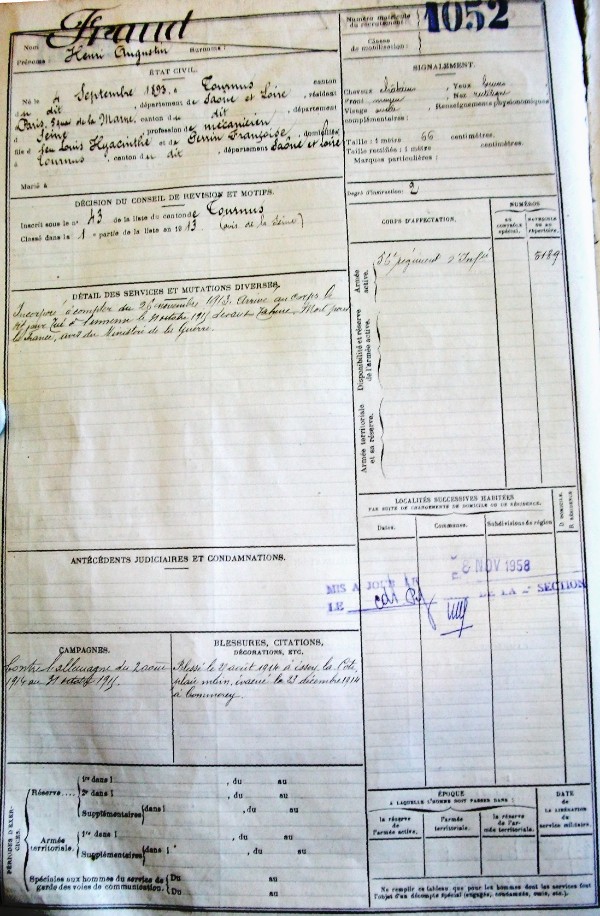 Fraud
1052
Numéro matricule du recrutement :
Nom
Prénoms : Henri Augustin Surnoms :
Classe de mobilisation :
ÉTAT CIVIL.
Né le 4 Septembre 1893, à Tournus canton
du dit, département de Saône et Loire, résident
Paris, de la Marne, canton du dit, département
Seine, profession de mécanicien
fils de feu Louis Hyacinthe et de Françoise, domiciliés
à Tournus, canton du dit, département Saône et Loire
Marié à
SIGNALEMENT.
Cheveux châtain Yeux
Front moyen Nez rectiligne
Visage Renseignements physionomiques
complémentaires :
Taille : 1 mètre 66 centimètres.
Taille rectifiée : 1 mètre centimètres.
Marques particulières :
Degré d'instruction : 2
DÉCISION DU CONSEIL DE REVISION ET MOTIFS.
Inscrit sous le n° 43 de la liste du canton de Tournus
Classé dans la 1e partie de la liste en 1913 (avis de la Seine)
CORPS D'AFFECTATION.
NUMÉROS
AU CONTRÔLE SPÉCIAL.
MATRICULE OU AU RÉPERTOIRE.
Armée active.
56e régiment d'Infie
5189
Disponibilité et réserve de l'armée active.
Armée territoriale et sa réserve.
DÉTAIL DES SERVICES ET MUTATIONS DIVERSES.
Incorporé à compter du 26 novembre 1913. Arrivé au Corps le
dit jour. Tué à l'ennemi le 31 octobre 1915 devant Tahure. Mort pour
la France, avis du Ministère de la Guerre.
LOCALITÉS SUCCESSIVES HABITÉES
PAR SUITE DE CHANGEMENTS DE DOMICILE OU DE RÉSIDENCE.
Dates.
Communes.
Subdivisions de région
D. DOMICILE.
R. RÉSIDENCE.
ANTÉCÉDENTS JUDICIAIRES ET CONDAMNATIONS.
8 NOV 1958
MIS A JOUR
LE DE LA SECTION
CAMPAGNES.
Contre l'Allemagne du 2 août
1914 au 31 octobre 1915.
BLESSURES, CITATIONS,
DÉCORATIONS, ETC.
Blessé le août 1914 à
évacué le 23 décembre 1914
à Commercy
PÉRIODES D'EXERCICES.
Réserve....
1re dans l , du au
2e dans l , du au
Supplémentaires dans l , du au
Armée territoriale.
1re dans l , du au
Supplémentaires dans l , du au
Spéciales aux hommes du service de garde des voies de communication.
Du au
Du au
ÉPOQUE
A LAQUELLE L'HOMME DOIT PASSER DANS :
la réserve de l'armée active.
l'armée territoriale.
la réserve de l'armée territoriale.
DATE de LA LIBÉRATION du service militaire.
Ne remplir ce tableau que pour les hommes dont les services font
l'objet d'un décompte spécial (engagés, condamnés, omis, etc.).